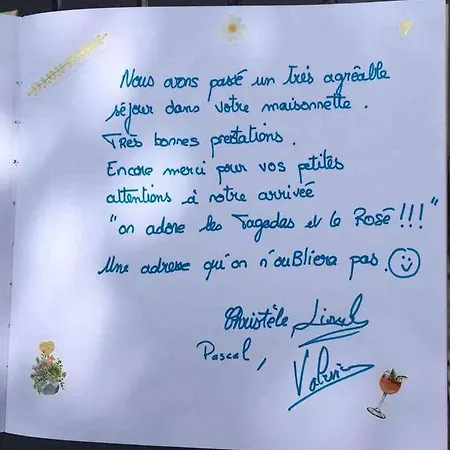 Nous avons passé un très agréable
séjour dans votre maisonnette.
Très bonnes prestations.
Encore merci pour vos petites
attentions à notre arrivée
"on adore les Tagadas et le Rosé!!!"
Une adresse qu'on n'ouBliera pas.
Christèle
Pascal,